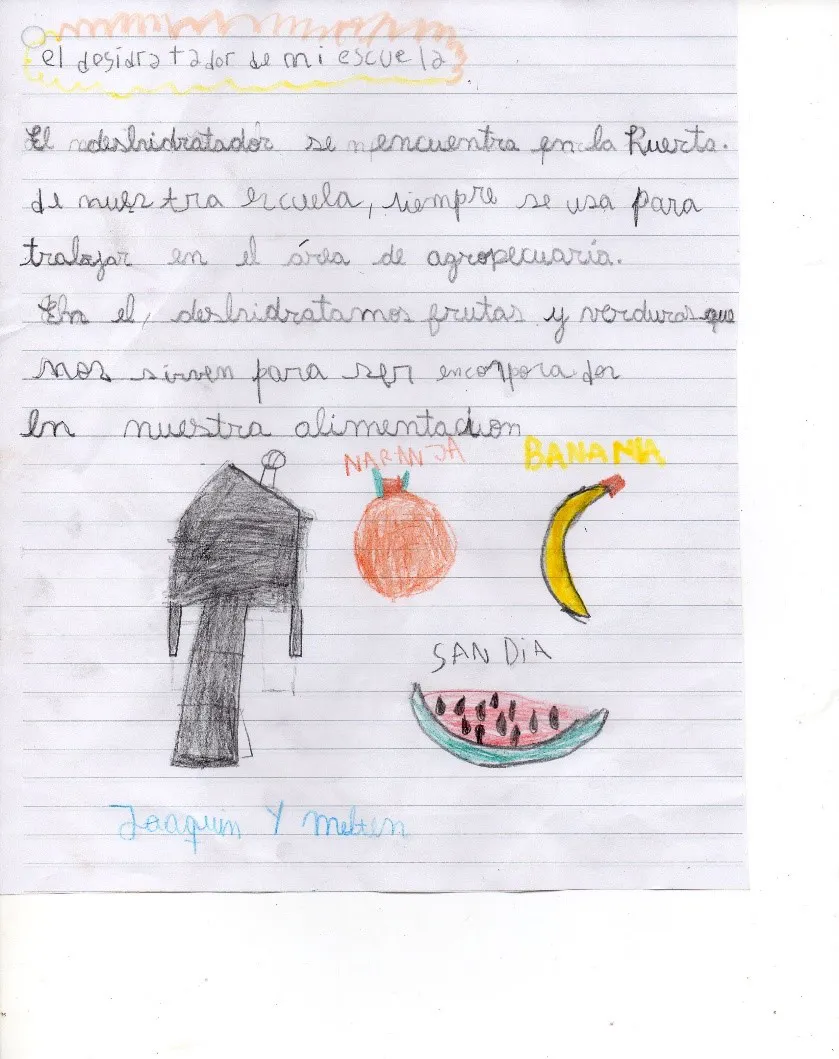 el desidratador de mi escuela
El deshidratador se encuentra en la huerta.
de nuestra escuela, siempre se usa para
trabajar en el área de agropecuaria.
En el, deshidratamos frutas y verduras que
nos sirven para ser encorporador
en nuestra alimentacion
NARANJA
BANANA
SAN DiA
Joaquin Y Melten